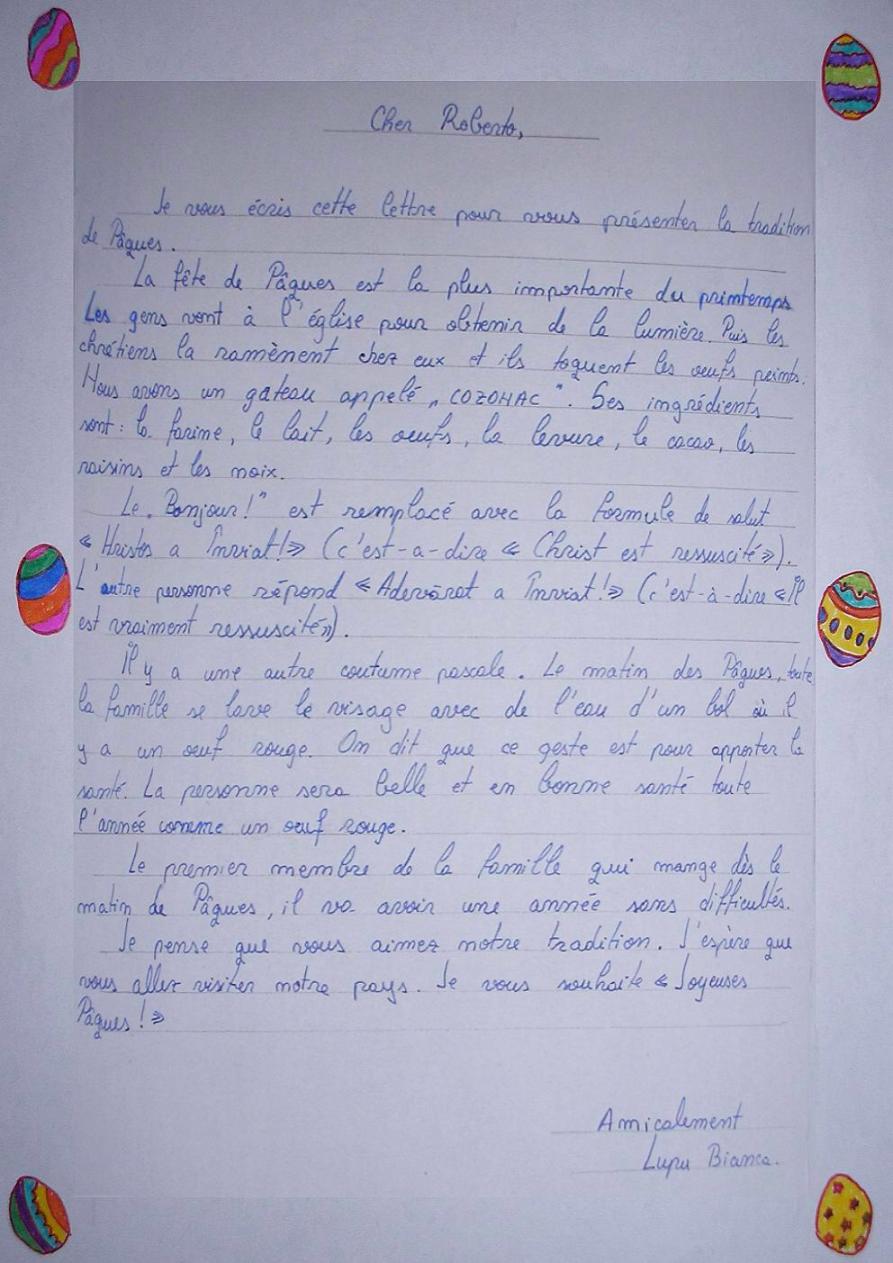 Cher Roberto,
Je vous écris cette lettre pour vous présenter la tradition
de Pâques.
La fête de Pâques est la plus importante du printemps
Les gens vont à l'église pour obtenir de la lumière. Puis les
chrétiens la ramènent chez eux et ils toquent les oeufs peints.
Nous avons un gateau appelé „COZONAC". Ses ingrédients
sont: la farine, le lait, les oeufs, la levure, le cacao, les
raisins et les noix.
Le „Bonjour!" est remplacé avec la formule de salut
« Hristos a Înviat!» (c'est-a-dire « Christ est ressuscité»).
L'autre personne répond « Adevărat a Înviat!» (c'est-à-dire «Il
est vraiment ressuscité»).
Il y a une autre coutume pascale. Le matin des Pâques, toute
la famille se lave le visage avec de l'eau d'un bol où il
y a un oeuf rouge. On dit que ce geste est pour apporter la
santé. La personne sera belle et en bonne santé toute
l'année comme un oeuf rouge.
Le premier membre de la famille qui mange dès le
matin de Pâques, il va avoir une année sans difficultés.
Je pense que vous aimez notre tradition. J'espère que
vous aller visiter notre pays. Je vous souhaite « Joyeuses
Pâques!»
Amicalement
Lupu Bianca.